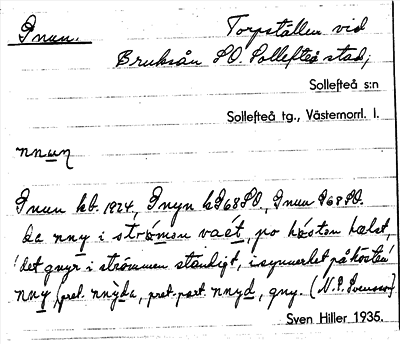 Gnun. Torpställen vid
Bruksån SO. Sollefteå stad;
Sollefteå s:n
Sollefteå tg., Västernorrl. l.
nnuŋ
Gnun kb. 1824, Gnyn G68SO, Gnun G68SO.
da nny i strömən vaót, po hóstən hælst,
'det gnyr i strömmen ständigt, i synnerhet på hösten'
nny, pret. nnýdа, pret. part. nnyd, gny. (N.P. Svensson)
Sven Hiller 1935.